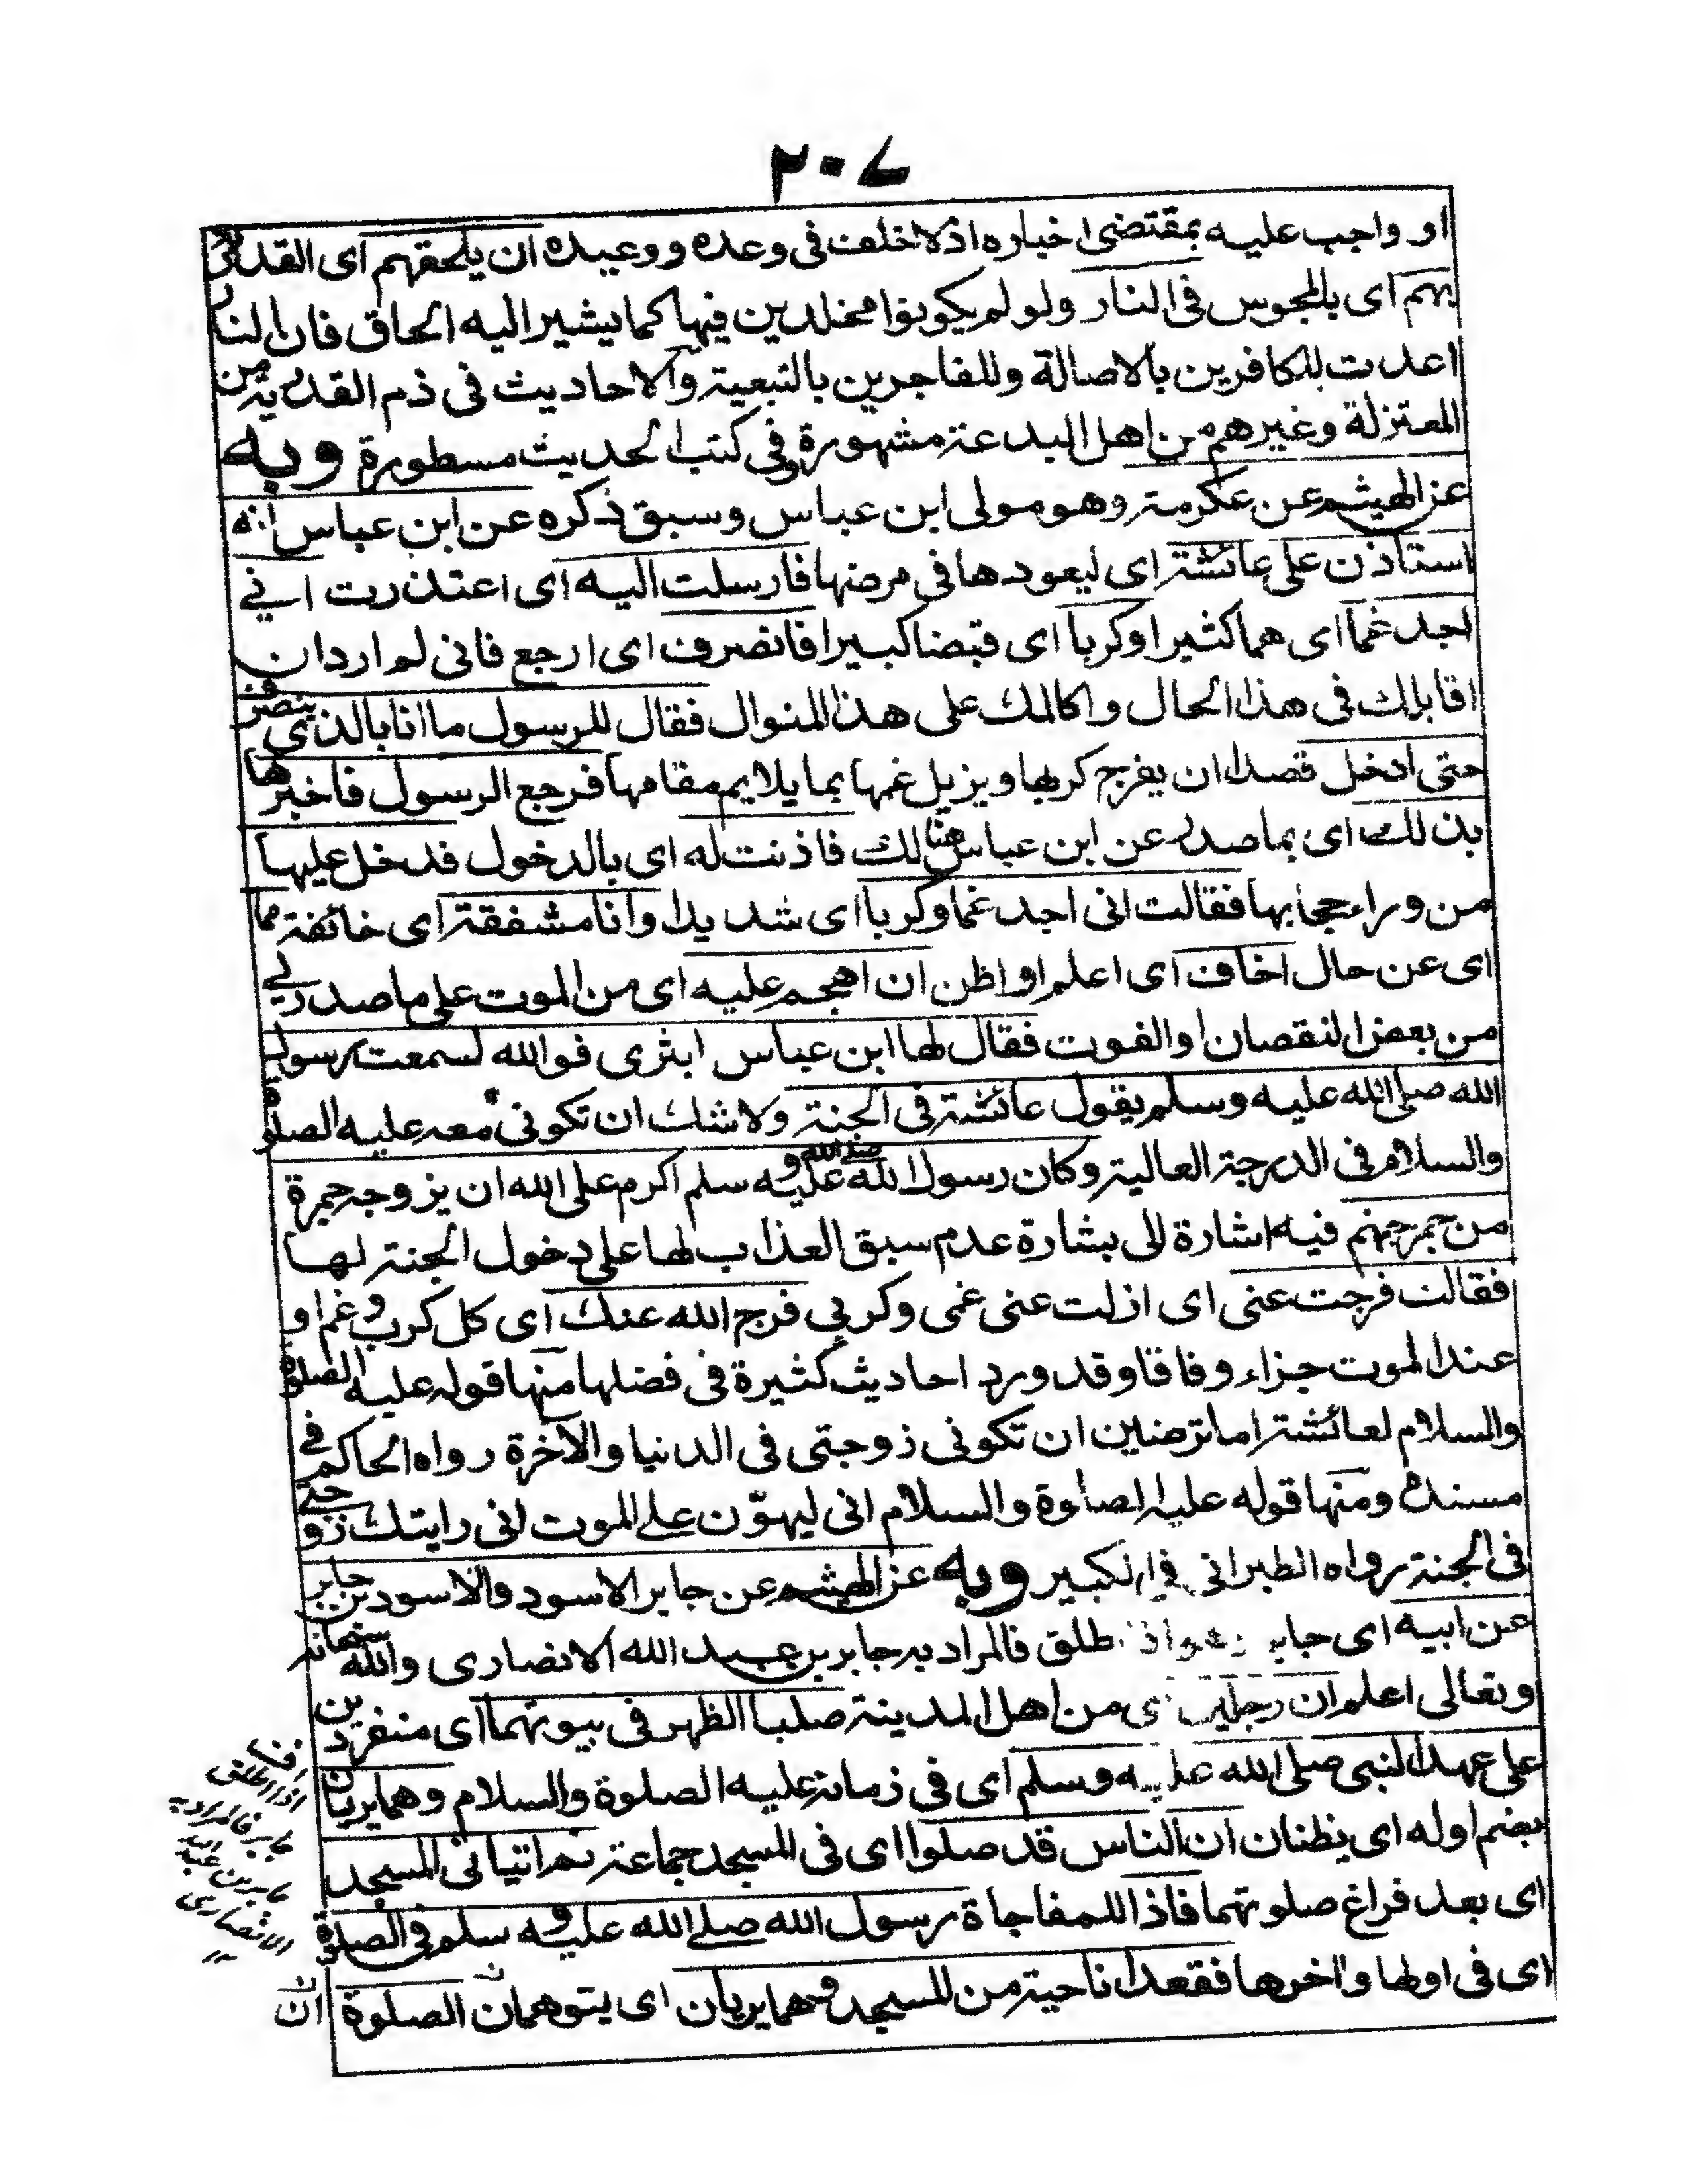 ٢٠٧
او واجب عليه بمقتضى اخباره اذ لا خلف فى وعده ووعيده ان يلحقهم اى القدرية
بهم اى بالمجوس فى النار ولو لم يكونوا مخلدين فيها كما يشير اليه الحاق فان النار
اعدت للكافرين بالاصالة وللفاجرين بالتبعية والاحاديث فى ذم القدرية من
المعتزلة وغيرهم من اهل البدعة مشهورة وفى كتب الحديث مسطورة وبه
عن الهيثم عن عكرمة وهو مولى ابن عباس وسبق ذكره عن ابن عباس انه
استاذن على عائشة اى ليعودها فى مرضها فارسلت اليه اى اعتذرت انى
اجد غما اى هما كثيرا وكربا اى قبضا كبيرا فانصرف اى ارجع فانى لم ارد ان
اقابلك فى هذا الحال واكالمك على هذا المنوال فقال للرسول ما انا بالذى ينصرف
حتى ادخل قصدا ان يفرج كربها ويزيل غمها بما يلايم مقامها فرجع الرسول فاخبرها
بذلك اى بما صدر عن ابن عباس هنالك فاذنت له اى بالدخول فدخل عليها
من وراء حجابها فقالت انى اجد غما وكربا اى شديدا وانا مشفقة اى خائفة مما
اى عن حال اخاف اى اعلم او اظن ان اهجم عليه اى من الموت على ما صدر لى
من بعض النقصان او الفوت فقال لها ابن عباس ابشرى فوالله لسمعت رسول
الله صلى الله عليه وسلم يقول عائشة فى الجنة ولا شك ان تكونى معه عليه الصلوة
والسلام فى الدرجة العالية وكان رسول الله صلى الله عليه وسلم اكرم على الله ان يزوجه جمرة
من جمر جهنم فيه اشارة الى بشارة عدم سبق العذاب لها على دخول الجنة لها
فقالت فرجت عنى اى ازلت عنى غمى وكربى فرج الله عنك اى كل كرب وغم او
عند الموت جزاء وفاقا وقد ورد احاديث كثيرة فى فضلها منها قوله عليه الصلوة
والسلام لعائشة اما ترضين ان تكونى زوجتى فى الدنيا والآخرة رواه الحاكم فى
مسنده ومنها قوله عليه الصلوة والسلام انى ليهوّن على الموت انى رايتك زوجتى
فى الجنة رواه الطبرانى فى الكبير وبه عن الهيثم عن جابر الاسود والاسود بن جابر
عن ابيه اى جابر اذا طلق فالمراد به جابر بن عبد الله الانصارى والله سبحانه
وتعالى اعلم ان رجلين اى من اهل المدينة صلبا الظهر فى بيوتهما اى منفردين
على عهد النبى صلى الله عليه وسلم اى فى زمانه عليه الصلوة والسلام وهما يريان
بضم اوله اى يظنان ان الناس قد صلوا اى فى المسجد جماعة ثم اتيا فى المسجد
اى بعد فراغ صلوتهما فاذا للمفاجاة رسول الله صلى الله عليه وسلم فى الصلوة
اى فى اولها واخرها فقعدا ناحية من المسجد وهما يريان اى يتوهمان ان الصلوة
ان
اذا اطلق
جابر فالمراد به
جابر بن عبد الله
الانصارى